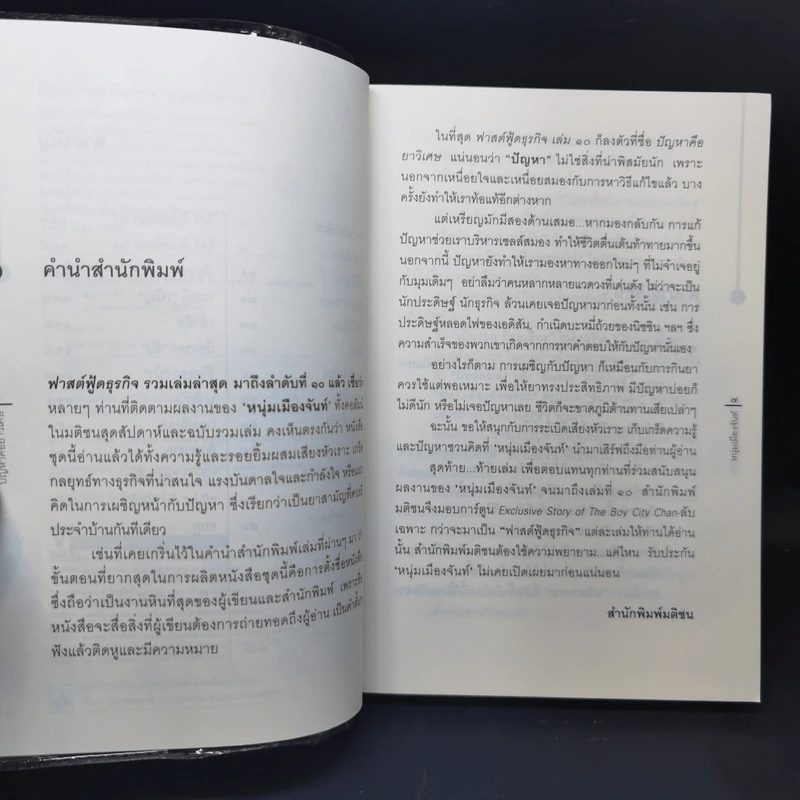 คำนำสำนักพิมพ์
ฟาสต์ฟู้ดธุรกิจ รวมเล่มล่าสุด มาถึงลำดับที่ ๑๐ แล้ว เชื่อว่า
หลายๆ ท่านที่ติดตามผลงานของ 'หนุ่มเมืองจันท์' ทั้งคอลัมน์
ในมติชนสุดสัปดาห์และฉบับรวมเล่ม คงเห็นตรงกันว่า หนังสือ
ชุดนี้อ่านแล้วได้ทั้งความรู้และรอยยิ้มผสมเสียงหัวเราะ เกร็ด
กลยุทธ์ทางธุรกิจที่น่าสนใจ แรงบันดาลใจและกำลังใจ หรือแนว
คิดในการเผชิญหน้ากับปัญหา ซึ่งเรียกว่าเป็นยาสามัญที่ควรมี
ประจำบ้านกันทีเดียว
เช่นที่เคยเกริ่นไว้ในคำนำสำนักพิมพ์เล่มที่ผ่านๆ มา ว่า
ขั้นตอนที่ยากสุดในการผลิตหนังสือชุดนี้คือการตั้งชื่อหนังสือ
ซึ่งถือว่าเป็นงานหินที่สุดของผู้เขียนและสำนักพิมพ์ เพราะชื่อ
หนังสือจะสื่อสิ่งที่ผู้เขียนต้องการถ่ายทอดถึงผู้อ่าน เป็นคำสั้นๆ
ฟังแล้วติดหูและมีความหมาย
ปัญหาคือยาวิเศษ
ในที่สุด ฟาสต์ฟู้ดธุรกิจ เล่ม ๑๐ ก็ลงตัวที่ชื่อ ปัญหาคือ
ยาวิเศษ แน่นอนว่า "ปัญหา" ไม่ใช่สิ่งที่น่าพิสมัยนัก เพราะ
นอกจากเหนื่อยใจและเหนื่อยสมองกับการหาวิธีแก้ไขแล้ว บาง
ครั้งยังทำให้เราท้อแท้อีกต่างหาก
แต่เหรียญมักมีสองด้านเสมอ...หากมองกลับกัน การแก้
ปัญหาช่วยเราบริหารเซลล์สมอง ทำให้ชีวิตตื่นเต้นท้าทายมากขึ้น
นอกจากนี้ ปัญหายังทำให้เรามองหาทางออกใหม่ๆ ที่ไม่จำเจอยู่
กับมุมเดิมๆ อย่าลืมว่าคนหลากหลายแวดวงที่เด่นดัง ไม่ว่าจะเป็น
นักประดิษฐ์ นักธุรกิจ ล้วนเคยเจอปัญหามาก่อนทั้งนั้น เช่น การ
ประดิษฐ์หลอดไฟของเอดิสัน, กำเนิดบะหมี่ถ้วยของนิชชิน ฯลฯ ซึ่ง
ความสำเร็จของพวกเขาเกิดจากการหาคำตอบให้กับปัญหานั่นเอง
อย่างไรก็ตาม การเผชิญกับปัญหา ก็เหมือนกับการกินยา
ควรใช้แต่พอเหมาะ เพื่อให้ยาทรงประสิทธิภาพ มีปัญหาบ่อยก็
ไม่ดีนัก หรือไม่เจอปัญหาเลย ชีวิตก็จะขาดภูมิต้านทานเสียเปล่าๆ
ฉะนั้น ขอให้สนุกกับการระเบิดเสียงหัวเราะ เก็บเกร็ดความรู้
และปัญหาชวนคิดที่ 'หนุ่มเมืองจันท์' นำมาเสิร์ฟถึงมือท่านผู้อ่าน
สุดท้าย...ท้ายเล่ม เพื่อตอบแทนทุกท่านที่ร่วมสนับสนุน
ผลงานของ 'หนุ่มเมืองจันท์' จนมาถึงเล่มที่ ๑๐ สำนักพิมพ์
มติชนจึงมอบการ์ตูน Exclusive Story of The Boy City Chan-ลับ
เฉพาะ กว่าจะมาเป็น "ฟาสต์ฟู้ดธุรกิจ" แต่ละเล่มให้ท่านได้อ่าน
นั้น สำนักพิมพ์มติชนต้องใช้ความพยายาม...แค่ไหน รับประกัน
'หนุ่มเมืองจันท์' ไม่เคยเปิดเผยมาก่อนแน่นอน
สำนักพิมพ์มติชน
หนุ่มเมืองจันท์